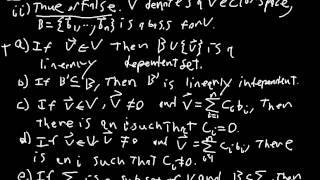 ii) True or False. V denotes a vector space,
B = {b⃗₁,…,b⃗ₙ} is a basis for V.
a) If v⃗∈V then B∪{v⃗} is a
linearly dependent set.
b) If B'⊆B, Then B' is linearly independent.
c) If v⃗∈V, v⃗≠0 and v⃗=∑ᵢ₌₁ⁿ Cᵢbᵢ, then
there is an i such that Cᵢ=0.
d) If v⃗∈V, v⃗≠0 and v⃗=∑ᵢ₌₁ⁿ Cᵢbᵢ, There
is an i such that Cᵢ≠0.
e) If ∑ is a subset of V and B⊆∑, Then